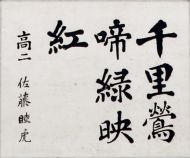 千里鶯
啼緑映
紅
高二 佐藤映虎